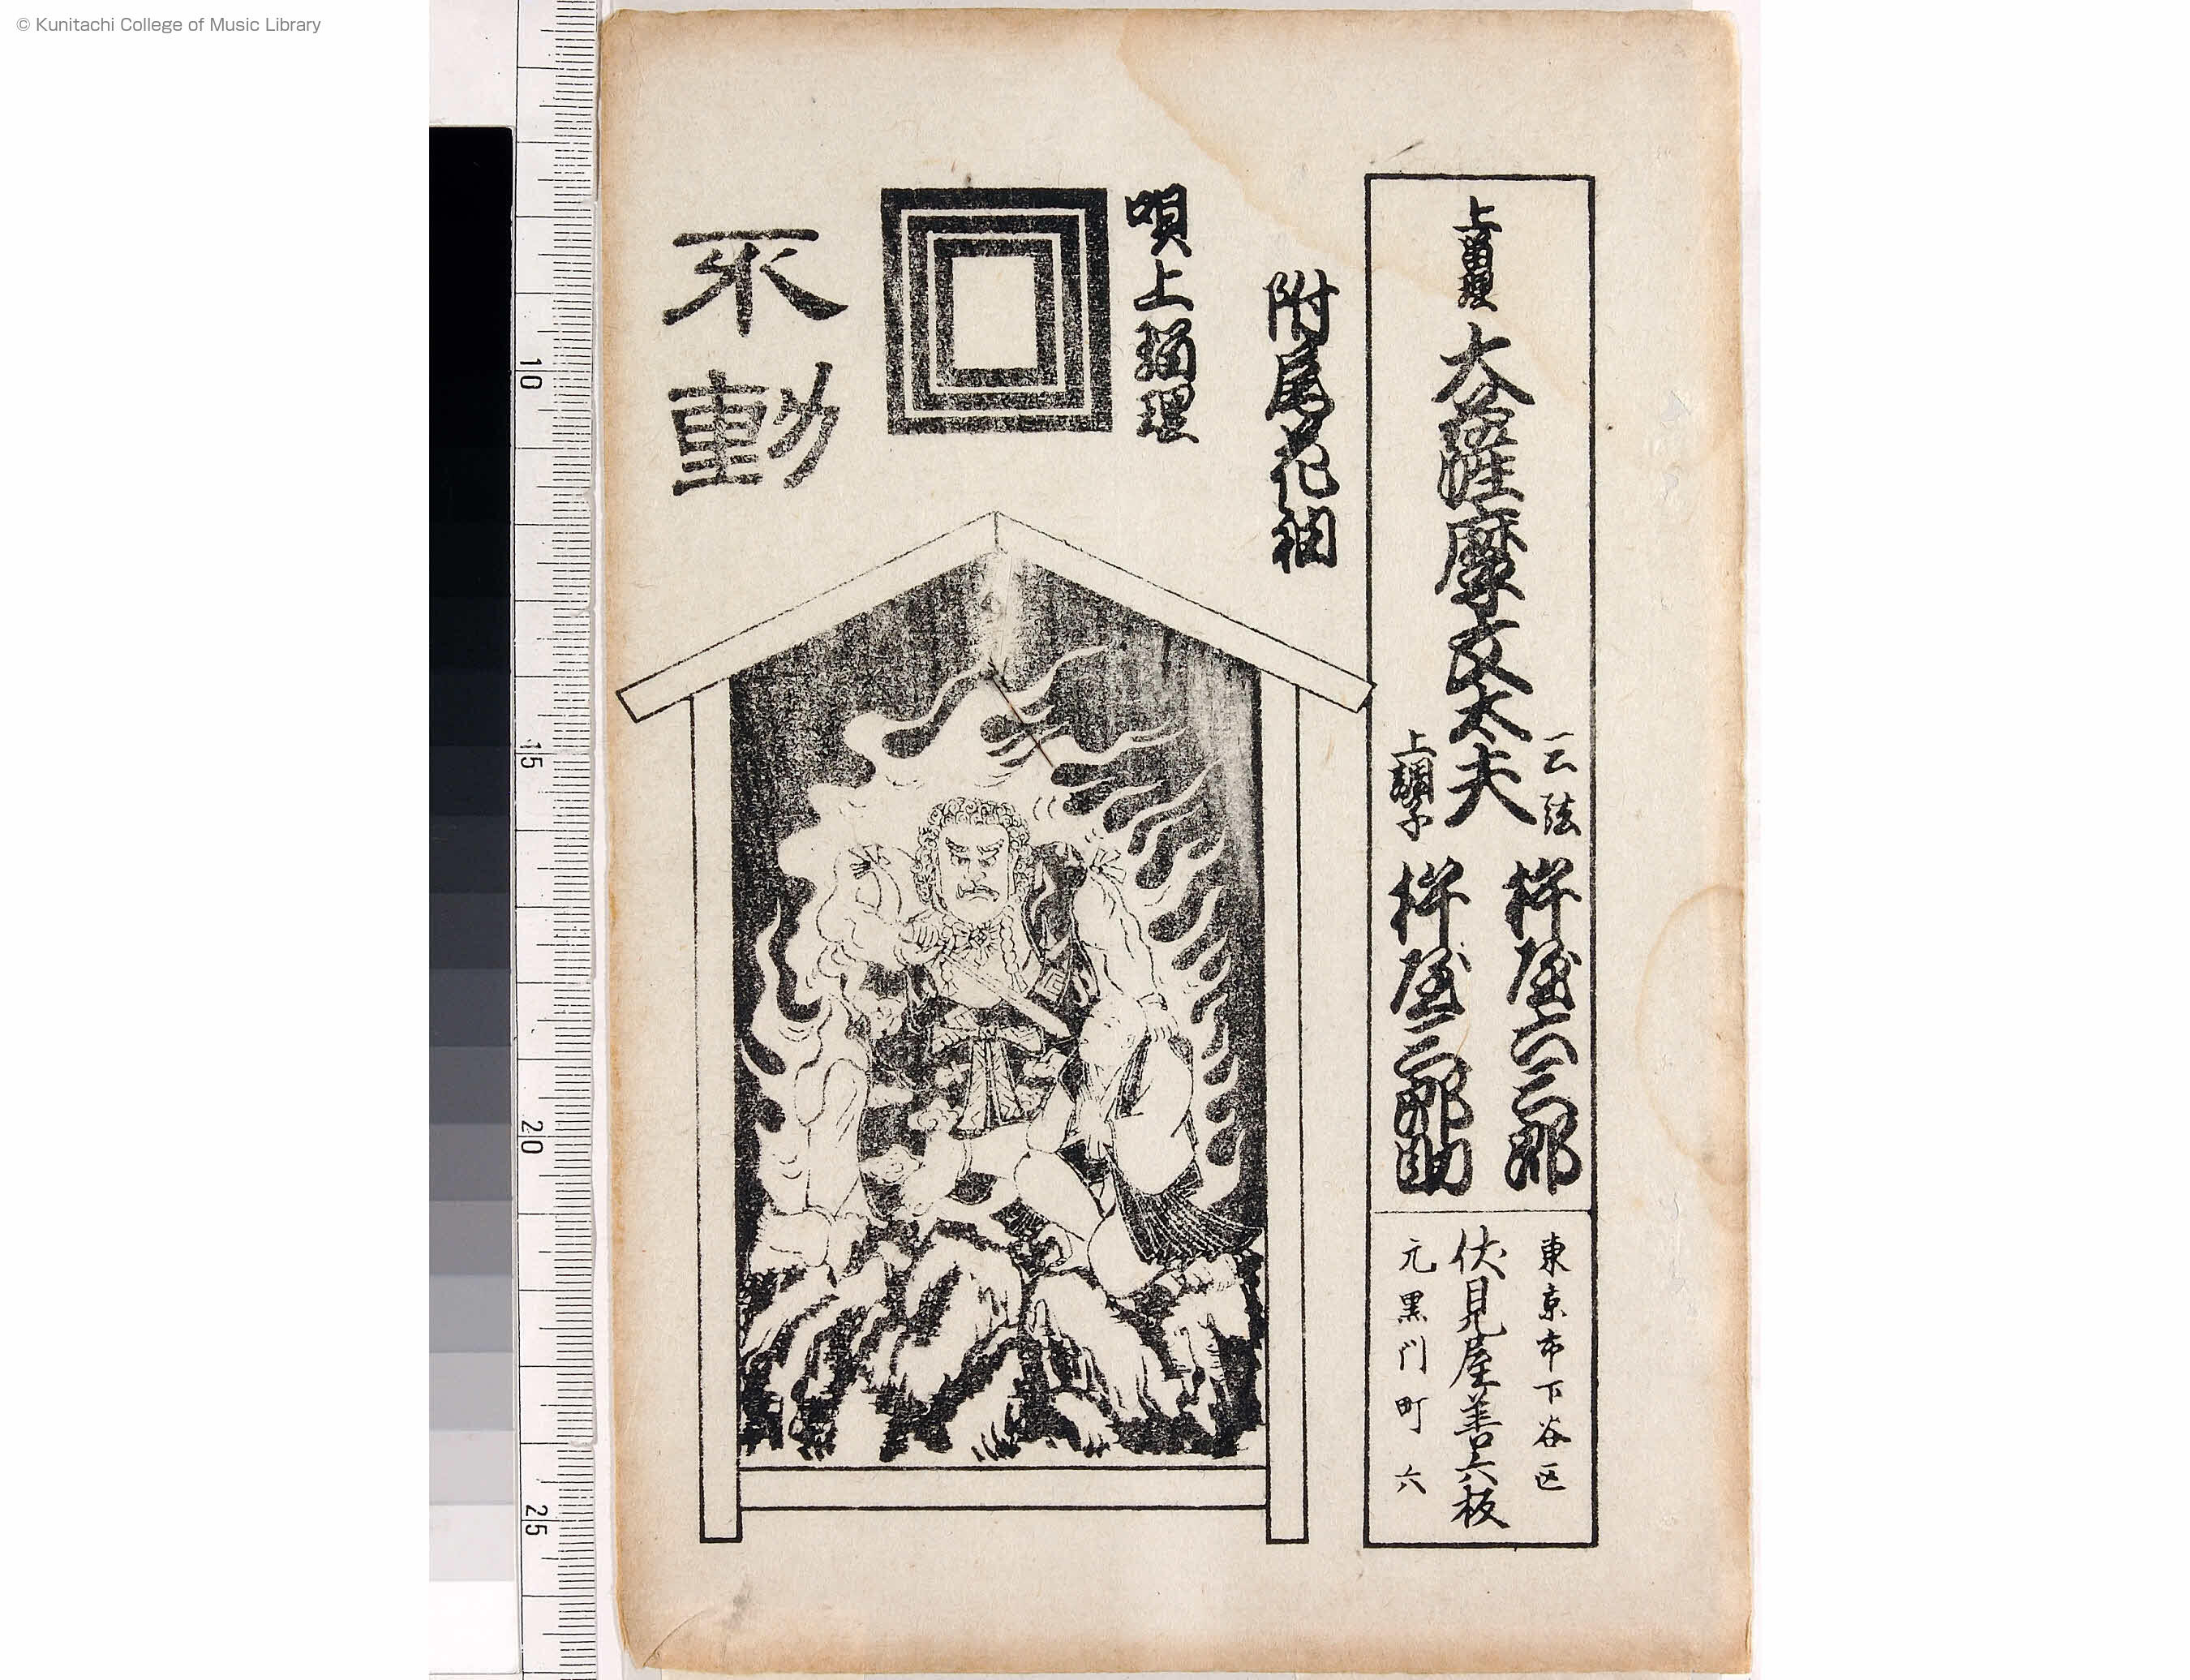 © Kunitachi College of Music Library
上留理 大薩摩文太夫
三弦 杵屋六三郎
上調子 杵屋三郎助
東京市下谷区
元黒門町六
伏見屋善六板
附尾花袖
唄上瑠理
不動
10
15
20
25